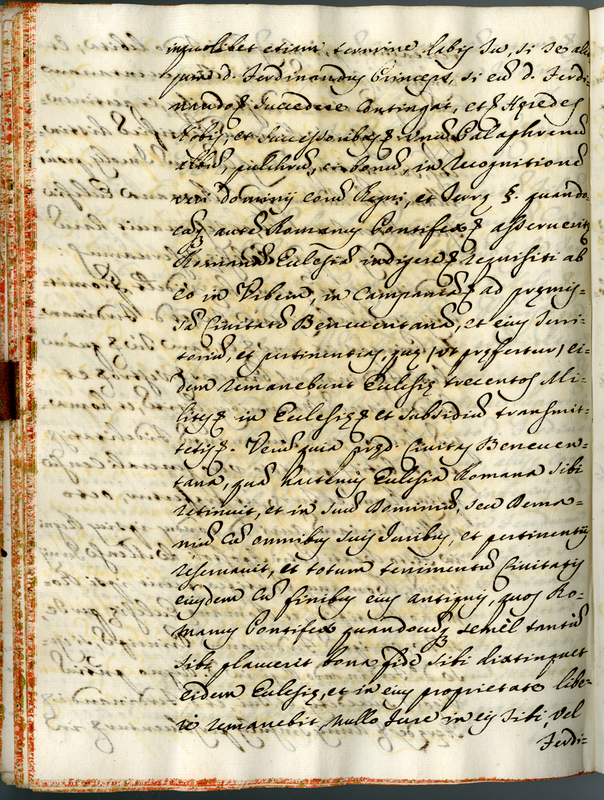 quolibet etiam termine dabis
pm d. Ferdinandus Princeps, si eũ d. Ferdi=
nandoȝ Succedere Contingat, et Hęredeȝ
et Successoribuȝ unũ Palaphrenũ
albũ, pulchrũ, et bonũ, in recognitionẽ
veri Dominij eorũ Regni, et Terrę §. quando=
cũq autẽ Romanus Pontifex asseruerit
Romanã Ecclesiã indigere, Requisiti ab
eo in Vrbem, in Campaniã ad pręmis=
sã Ciuitatẽ Beneuentanã, et eius Terri=
toriũ, et pertinentias, quę (vt pręfertur) ei=
dem remanebunt Ecclesię trecentos Mi=
lites in Ecclesię et subsidiũ transmit=
tetis. Verũ quia pręd. Ciuitas Beneuen=
tana, quã hactenus Ecclesia Romana sibi
retinuit, et in suũ Dominiũ, seu Dema=
niũ cũ omnibus suis Iuribus, et pertinentijs
reseruauit, et totum tenimentũ Ciuitatis
eiusdem cũ finibus eius antiquis, quos Ro=
manus Pontifex quandocũq semèl tantũ
sibi placuerit bona fide sibi distinguet
eidem Ecclesię, et in eius proprietate libe=
re remanebit, nullo Iure in eis sibi vel
Ferdi=